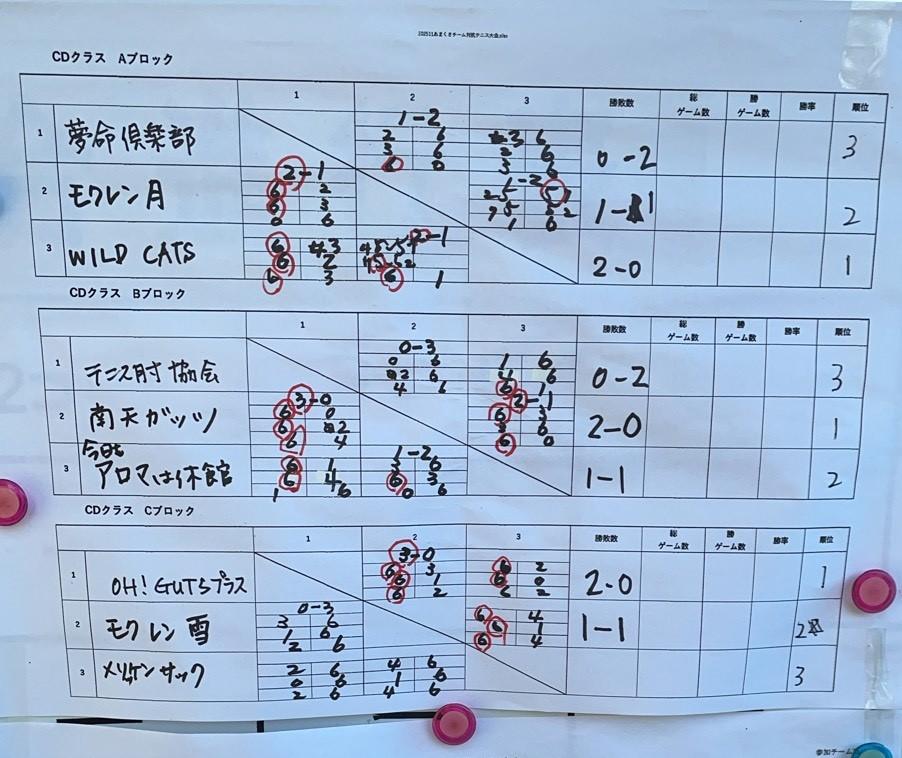 202511あまくさチーム対抗テニス大会.xlsx
CDクラス Aブロック
1 2 3 勝敗数 総ゲーム数 勝ゲーム数 勝率 順位
1 夢命倶楽部 1-2 0-2 3
2 6 3 6
3 6 2 6
6 0 3 6
2 モクレン月 2-1 1-2 1-1 2
6 2
6 3
0 6 1 6
3 WILD CATS 2-1 2-0 1
6 3
6 2
6 3 6 1
CDクラス Bブロック
1 2 3 勝敗数 総ゲーム数 勝ゲーム数 勝率 順位
1 テニス肘協会 0-3 0-2 3
0 6 1 6
2 6 4 6
4 6 6 1
2 南天ガッツ 3-0 2-1 2-0 1
6 0 6 3
6 2 3 6
6 4 6 0
3 今日もアロマは休館 1-2 1-1 2
6 1 3 6
6 4 6 3
1 6 0 6
CDクラス Cブロック
1 2 3 勝敗数 総ゲーム数 勝ゲーム数 勝率 順位
1 OH! GUTSプラス 3-0 2-0 1
6 3 6 2
6 1 6 0
6 2 6 2
2 モクレン雪 0-3 1-1 2
3 6 6 4
1 6 6 1
2 6 6 4
3 メリケンサック 3
2 6 4 6
0 6 1 6
2 6 4 6
参加チーム